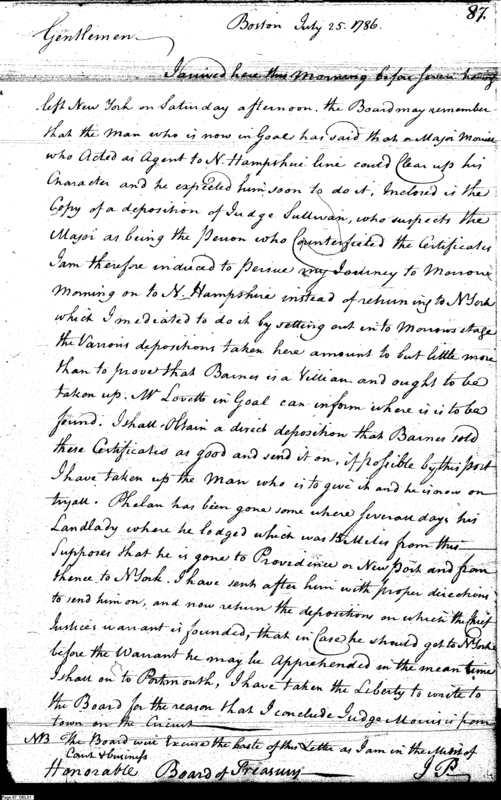 87.
Boston July 25. 1786.
Gentlemen
I arrived here this Morning before seven having
left New York on Saturday afternoon. the Board may remember
that the man who is now in Goal has said that a Major
who Acted as Agent to N. Hampshire line could Clear up his
Character and he expected him soon to do it, Inclosed is the
Copy of a deposition of Judge Sullivan, who suspects the
Major as being the Person who Counterfieted the Certificates
I am therefore induced to Persue my Journey to Morrow
Morning on to N. Hampshire instead of returning to N York
which I mediated to do it by setting out in to Morrows stage
the Varrous depositions taken here amount to but little more
than to prove that Barnes is a Villian and ought to be
taken up. Mr Lovett in Goal can inform where is is to be
found. I shall Obtain a direct deposition that Barnes sold
these Certificates as good and send it on, if possible by this post
I have taken up the Man who is to give it and he is now on
tryall. Phelan has been gone some where severall days his
Landlady where he lodged which was Miles from this
Supposes that he is gone to Providence or New Port and from
thence to N York. I have sent after him with proper directions
to send him on, and now return the depositions on which the Chief
Justices warrant is founded, that in Case he should get to N York
before the Warrant he may be Apprehended in the mean time
I shall on to Portmouth, I have taken the Liberty to write to
the Board for the reason that I conclude Judge Morris is from
town on the Circuit
NB The Board will Excuse the haste of this Letter as I am in the Midst of
Court & business
Honorable Board of Treasury J P